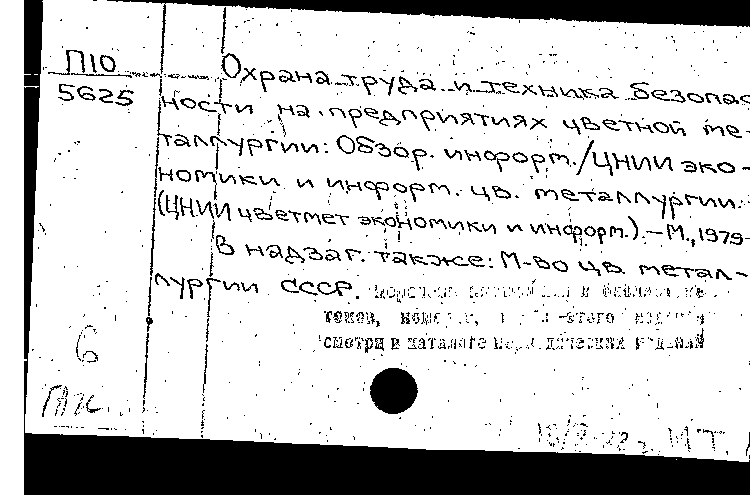 П10
5625
Охрана труда и техника безопас
ности на предприятиях цветной ме-
таллургии: Обзор. информ./ЦНИИ эко-
номики и информ. цв. металлургии.
(ЦНИИцветмет экономики и информ.).-М., 1979-
В надзаг. также: М-во цв. метал-
лургии СССР.
томов,
смотри в каталоге
6